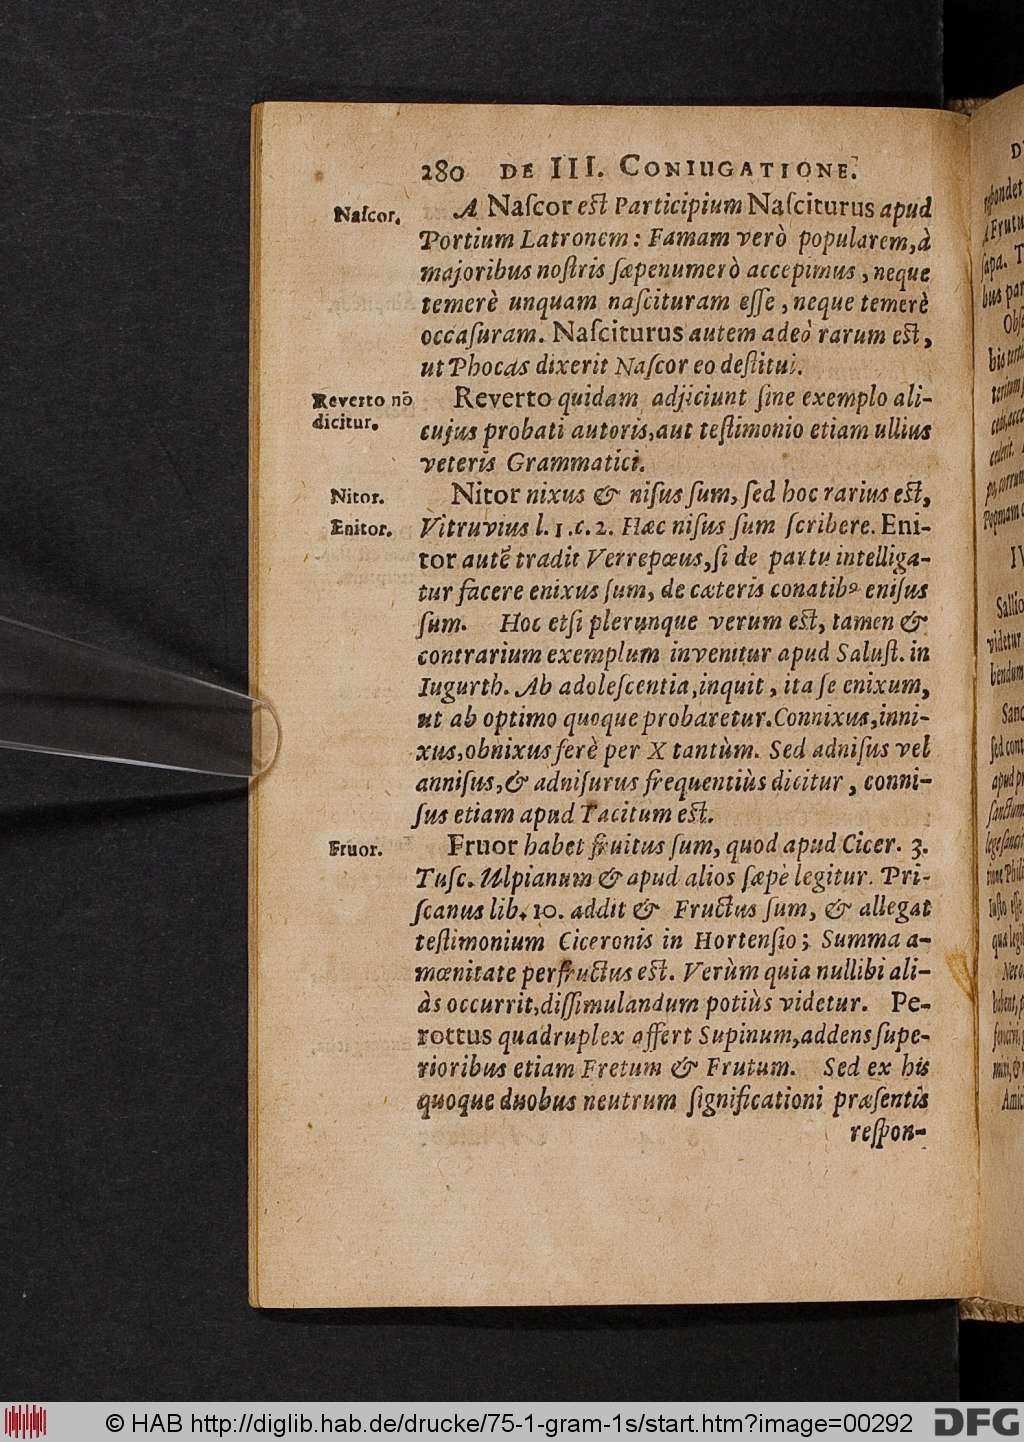 280 DE III. CONIUGATIONE.
Naſcor.
A Naſcor eſt Participium Naſciturus apud
Portium Latronem: Famam verò popularem, à
majoribus noſtris ſæpenumerò accepimus, neque
temerè unquam naſcituram eſſe, neque temerè
occaſuram. Naſciturus autem adeò rarum eſt,
ut Phocas dixerit Naſcor eo deſtitui.
Reverto nō
dicitur.
Reverto quidam adjiciunt ſine exemplo ali-
cujus probati autoris, aut teſtimonio etiam ullius
veteris Grammatici.
Nitor.
Nitor nixus & niſus ſum, ſed hoc rarius eſt,
Enitor.
Vitruvius l. 1. c. 2. Hæc niſus ſum ſcribere. Eni-
tor autē tradit Verrepæus, ſi de partu intelliga-
tur facere enixus ſum, de cæteris conatibꝰ eniſus
ſum. Hoc etſi plerunque verum eſt, tamen &
contrarium exemplum invenitur apud Saluſt. in
Iugurth. Ab adoleſcentia, inquit, ita ſe enixum,
ut ab optimo quoque probaretur. Connixus, inni-
xus, obnixus ferè per X tantùm. Sed adniſus vel
anniſus, & adniſurus frequentiùs dicitur, conni-
ſus etiam apud Tacitum eſt.
Fruor.
Fruor habet fruitus ſum, quod apud Cicer. 3.
Tuſc. Ulpianum & apud alios ſæpè legitur. Pri-
ſcanus lib. 10. addit & Fructus ſum, & allegat
teſtimonium Ciceronis in Hortenſio; Summa a-
mœnitate perfructus eſt. Verùm quia nullibi ali-
às occurrit, diſſimulandum potiùs videtur. Pe-
rottus quadruplex affert Supinum, addens ſupe-
rioribus etiam Fretum & Frutum. Sed ex his
quoque duobus neutrum ſignificationi præſentis
reſpon-
IV
© HAB http://diglib.hab.de/drucke/75-1-gram-1s/start.htm?image=00292
DFG